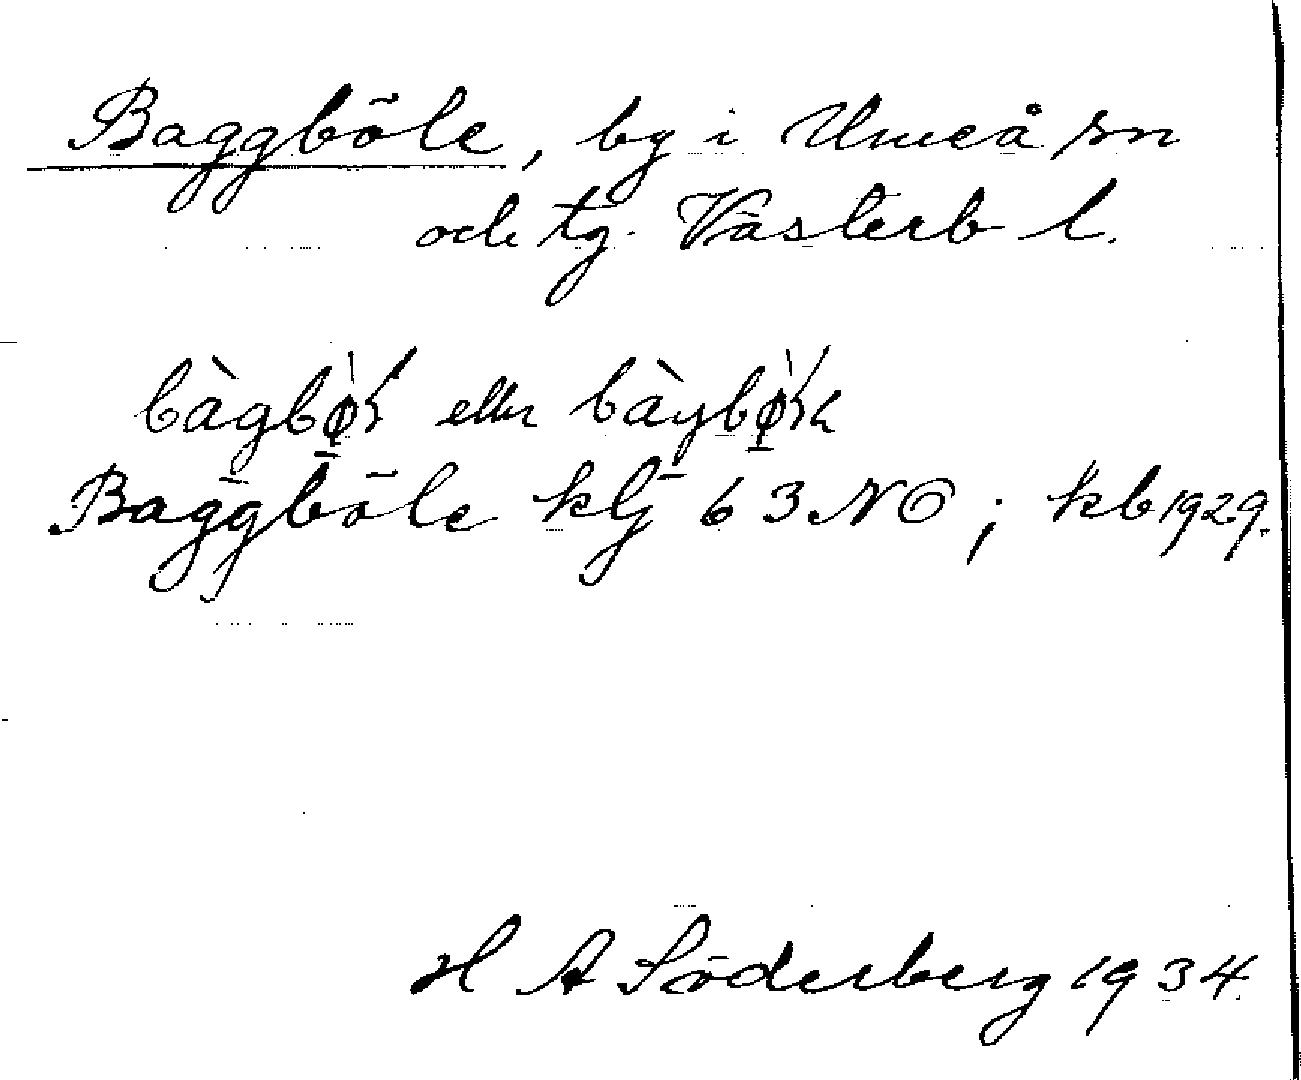 Baggböle, by i Umeå sn
och tg. Västerb l.
eller
Baggböle klj 63 NO; kb 1929.
H A Söderberg 1934.